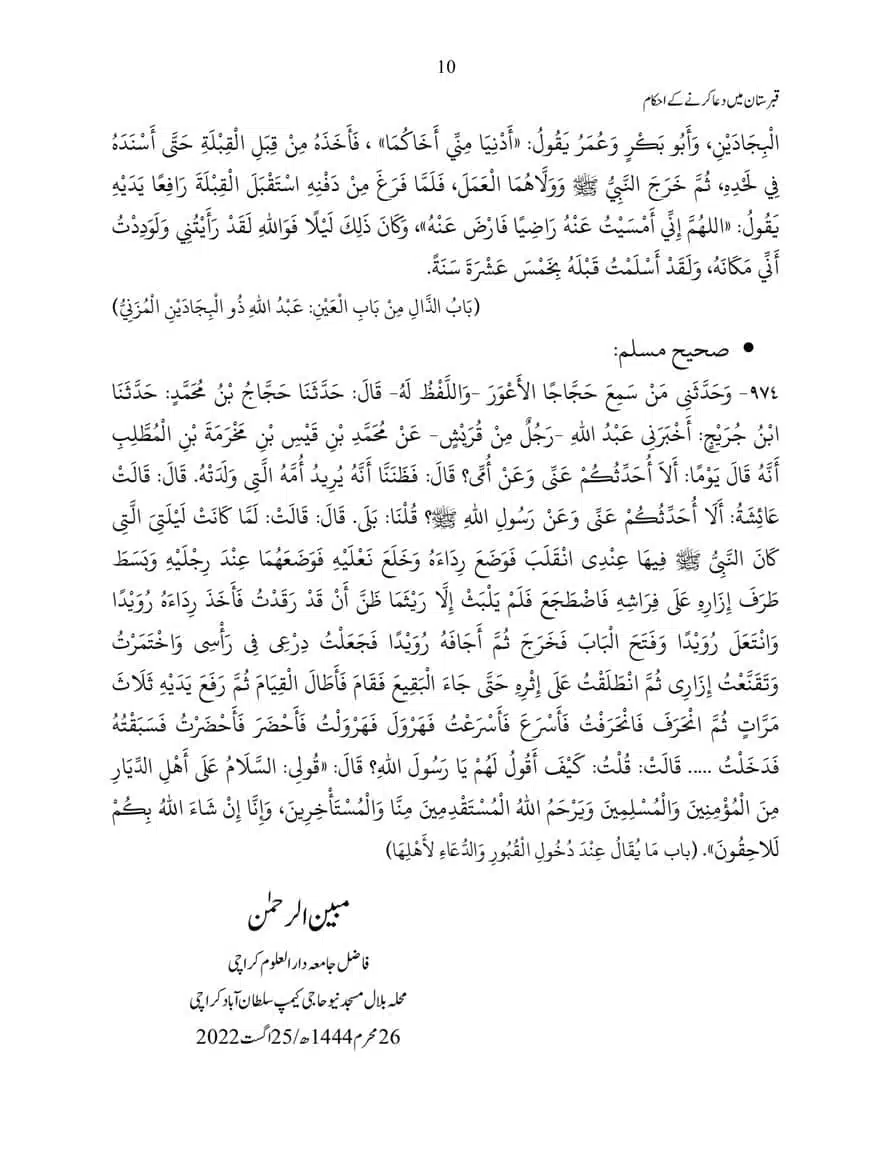 10
قبرستان میں دعا کرنے کے احکام
الْبِجَادَيْنِ، وَأَبُو بَكْرٍ وَعُمَرُ يَقُولُ: «أَدْنِيَا مِنِّي أَخَاكُمَا» ، فَأَخَذَهُ مِنْ قِبَلِ الْقِبْلَةِ حَتَّى أَسْنَدَهُ
فِي لَحْدِهِ، ثُمَّ خَرَجَ النَّبِيُّ ﷺ وَوَلَّاهُمَا الْعَمَلَ، فَلَمَّا فَرَغَ مِنْ دَفْنِهِ اسْتَقْبَلَ الْقِبْلَةَ رَافِعًا يَدَيْهِ
يَقُولُ: «اللهُمَّ إِنِّي أَمْسَيْتُ عَنْهُ رَاضِيًا فَارْضَ عَنْهُ»، وَكَانَ ذَلِكَ لَيْلًا فَوَاللهِ لَقَدْ رَأَيْتُنِي وَلَوَدِدْتُ
أَنِّي مَكَانَهُ، وَلَقَدْ أَسْلَمْتُ قَبْلَهُ بِخَمْسَ عَشْرَةَ سَنَةً.
(بَابُ الذَّالِ مِنْ بَابِ الْعَيْنِ: عَبْدُ اللهِ ذُو الْبِجَادَيْنِ الْمُزَنِيُّ)
• صحیح مسلم:
٩٧٤- وَحَدَّثَنِى مَنْ سَمِعَ حَجَّاجًا الأَعْوَرَ -وَاللَّفْظُ لَهُ- قَالَ: حَدَّثَنَا حَجَّاجُ بْنُ مُحَمَّدٍ: حَدَّثَنَا
ابْنُ جُرَيْجٍ: أَخْبَرَنِى عَبْدُ اللهِ -رَجُلٌ مِنْ قُرَيْشٍ- عَنْ مُحَمَّدِ بْنِ قَيْسِ بْنِ مَخْرَمَةَ بْنِ الْمُطَّلِبِ
أَنَّهُ قَالَ يَوْمًا: أَلاَ أُحَدِّثُكُمْ عَنِّى وَعَنْ أُمِّى؟ قَالَ: فَظَنَنَّا أَنَّهُ يُرِيدُ أُمَّهُ الَّتِى وَلَدَتْهُ. قَالَ: قَالَتْ
عَائِشَةُ: أَلَا أُحَدِّثُكُمْ عَنِّى وَعَنْ رَسُولِ اللهِ ﷺ؟ قُلْنَا: بَلَى. قَالَ: قَالَتْ: لَمَّا كَانَتْ لَيْلَتِىَ الَّتِى
كَانَ النَّبِىُّ ﷺ فِيهَا عِنْدِى انْقَلَبَ فَوَضَعَ رِدَاءَهُ وَخَلَعَ نَعْلَيْهِ فَوَضَعَهُمَا عِنْدَ رِجْلَيْهِ وَبَسَطَ
طَرَفَ إِزَارِهِ عَلَى فِرَاشِهِ فَاضْطَجَعَ فَلَمْ يَلْبَثْ إِلَّا رَيْثَمَا ظَنَّ أَنْ قَدْ رَقَدْتُ فَأَخَذَ رِدَاءَهُ رُوَيْدًا
وَانْتَعَلَ رُوَيْدًا وَفَتَحَ الْبَابَ فَخَرَجَ ثُمَّ أَجَافَهُ رُوَيْدًا فَجَعَلْتُ دِرْعِى فِى رَأْسِى وَاخْتَمَرْتُ
وَتَقَنَّعْتُ إِزَارِى ثُمَّ انْطَلَقْتُ عَلَى إِثْرِهِ حَتَّى جَاءَ الْبَقِيعَ فَقَامَ فَأَطَالَ الْقِيَامَ ثُمَّ رَفَعَ يَدَيْهِ ثَلَاثَ
مَرَّاتٍ ثُمَّ انْحَرَفَ فَانْحَرَفْتُ فَأَسْرَعَ فَأَسْرَعْتُ فَهَرْوَلَ فَهَرْوَلْتُ فَأَحْضَرَ فَأَحْضَرْتُ فَسَبَقْتُهُ
فَدَخَلْتُ ..... قَالَتْ: قُلْتُ: كَيْفَ أَقُولُ لَهُمْ يَا رَسُولَ اللهِ؟ قَالَ: «قُولِى: السَّلَامُ عَلَى أَهْلِ الدِّيَارِ
مِنَ الْمُؤْمِنِينَ وَالْمُسْلِمِينَ وَيَرْحَمُ اللهُ الْمُسْتَقْدِمِينَ مِنَّا وَالْمُسْتَأْخِرِينَ، وَإِنَّا إِنْ شَاءَ اللهُ بِكُمْ
لَلاَحِقُونَ». (باب مَا يُقَالُ عِنْدَ دُخُولِ الْقُبُورِ وَالدُّعَاءِ لأَهْلِهَا)
مبین الرحمٰن
فاضل جامعہ دار العلوم کراچی
محلہ بلال مسجد نیو حاجی کیمپ سلطان آباد کراچی
26 محرم 1444ھ/25 اگست 2022